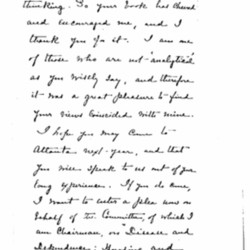 thinking. So your book has cheered
and encouraged me, and I
thank you for it. I am one
of those who are not "analytical"
as you wisely say, and therefore
it was a great pleasure to find
your views coincided with mine.
I hope you may come to
Atlanta next year, and that
you will speak to us out of your
long experience. If you do come,
I want to enter a plea now on
behalf of the Committee, of which I
am Chairman, on "Disease and
Dependence; Housing and